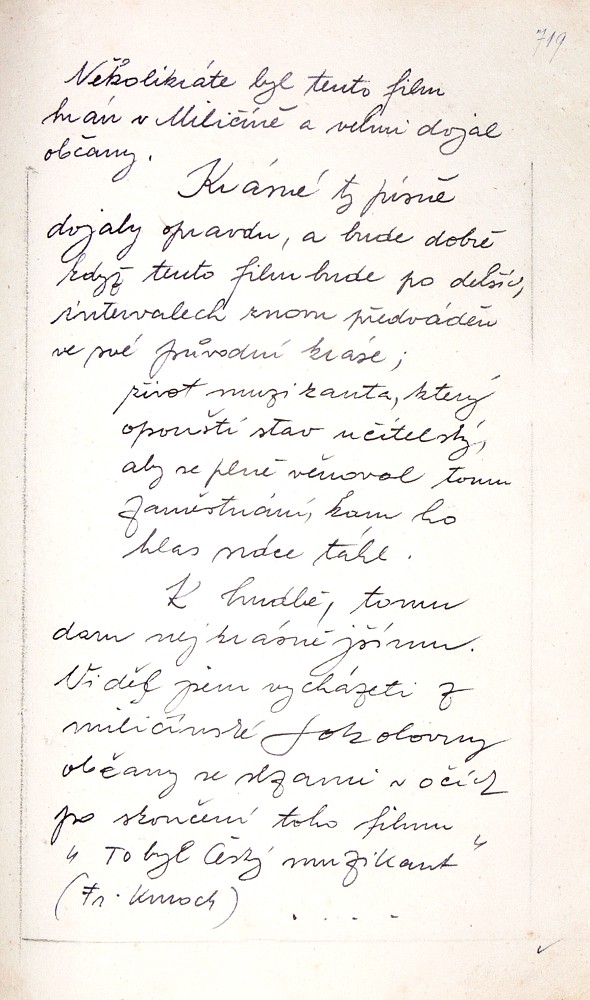 719
Několikráte byl tento film
hrán v Miličíně a velmi dojal
občany.
Krásné ty písně
dojaly opravdu, a bude dobré
když tento film bude po delších
intervalech znovu předváděn
ve své původní kráse;
život muzikanta, který
opouští stav učitelský,
aby se plně věnoval tomu
zaměstnání, kam ho
hlas srdce táhl.
K hudbě, tomu
daru nejkrásnějšímu.
Viděl jsem vycházeti z
miličínské Sokolovny
občany se slzami v očích
po skončení toho filmu
"To byl Český muzikant"
(Fr. Kmoch) . . . .